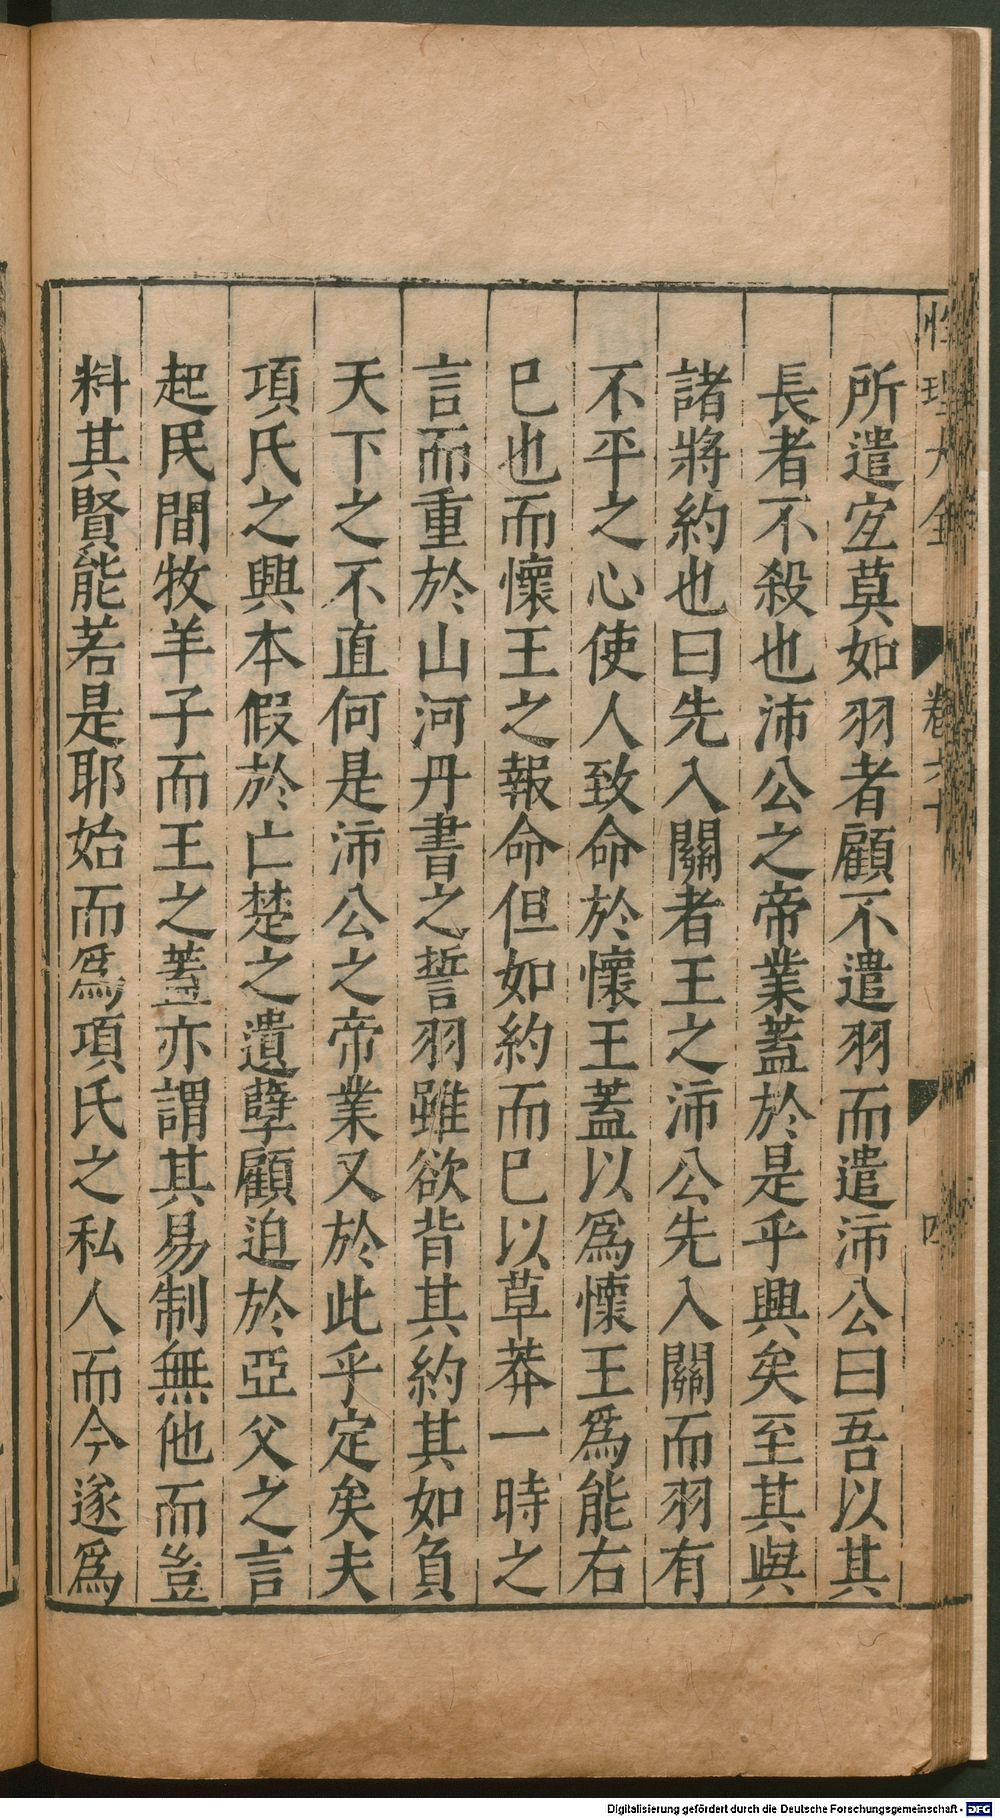 性理大全 卷六十 四
所遣宜莫如羽者顧不遣羽而遣沛公曰吾以其
長者不殺也沛公之帝業蓋於是乎興矣至其與
諸將約也曰先入關者王之沛公先入關而羽有
不平之心使人致命於懷王蓋以爲懷王爲能右
已也而懷王之報命但如約而已以草莽一時之
言而重於山河丹書之誓羽雖欲背其約其如負
天下之不直何是沛公之帝業又於此乎定矣夫
項氏之興本假於亡楚之遺孽顧迫於亞父之言
起民間牧羊子而王之蓋亦謂其易制無他而豈
料其賢能若是耶始而爲項氏之私人而今遂爲
Digitalisierung gefördert durch die Deutsche Forschungsgemeinschaft - DFG